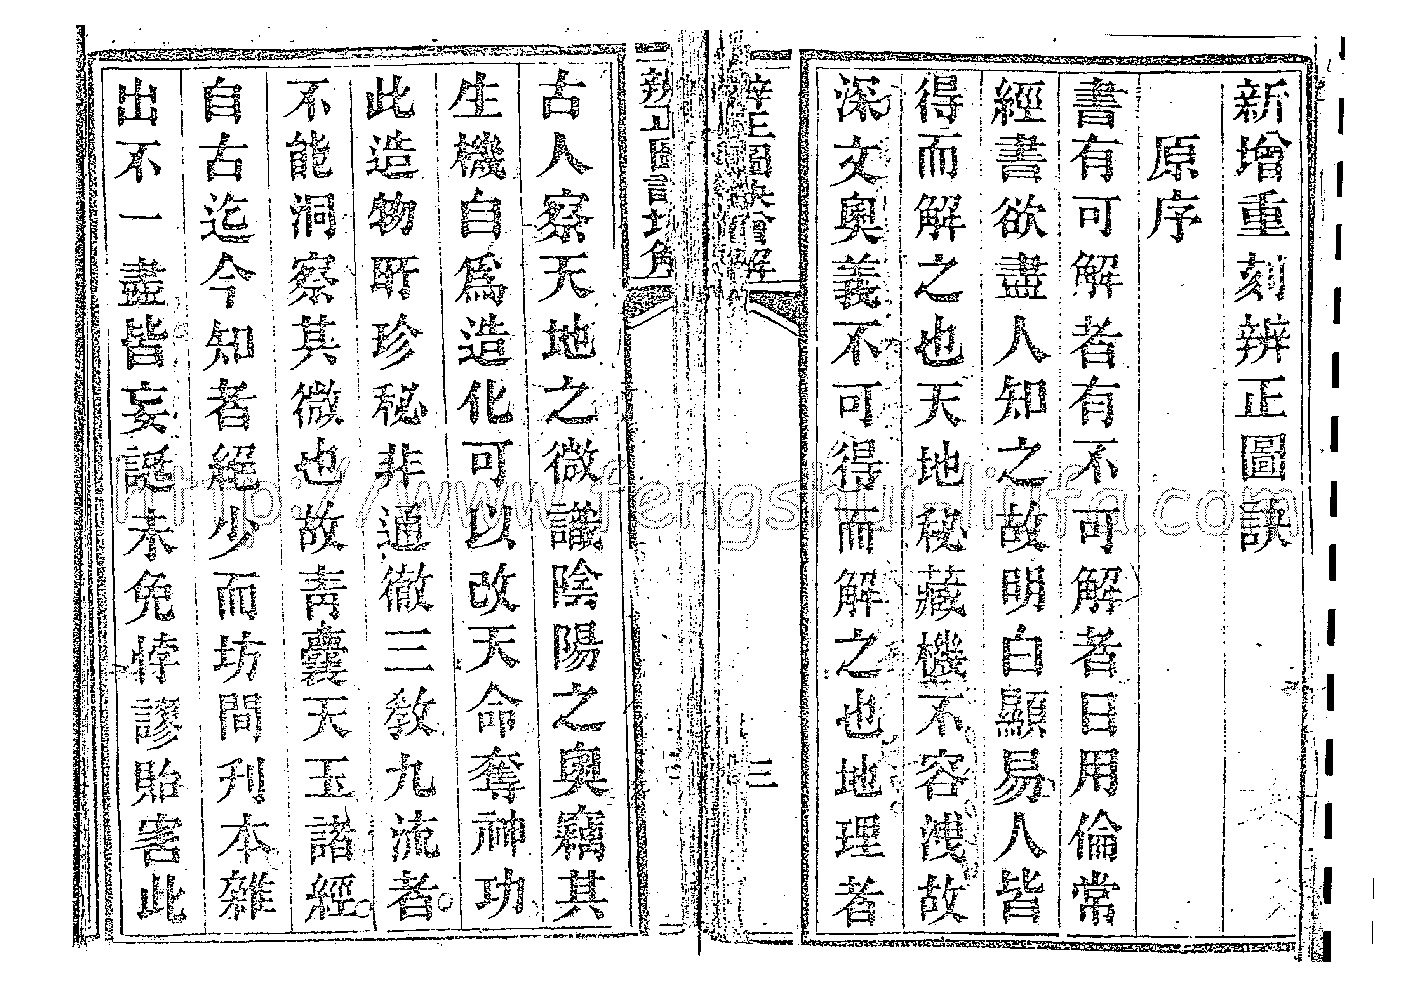 新增重刻辨正圖訣
原序
書有可解者有不可解者日用倫常
經書欲盡人知之故明白顯易人皆
得而解之也天地秘藏機不容洩故
深文奧義不可得而解之也地理者
三
古人察天地之微識陰陽之奧竊其
生機自為造化可以改天命奪神功
此造物所珍秘非通徹三教九流者
不能洞察其微也故青囊天玉諸經
自古迄今知者絕少而坊間刋本雜
出不一盡皆妄誕未免悖謬貽害此
http://www.fengshui-liufa.com